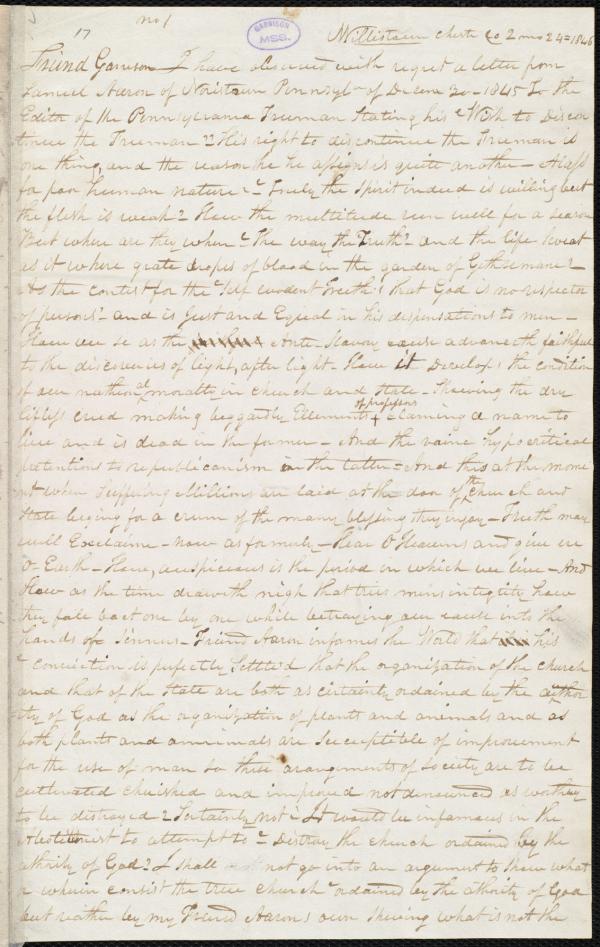 no 1
17
GARRISON
MSS.
Willistown Chester Co 2 mo 24= 1846
Friend Garrison I have observed with regret a letter from
Samuel Aaron of Noristown Pennsyl- of Decem 20- 1845 To the
Editor of the Pennsylvania Freeman Stating his "Wish to Discon
tinue the Freeman" His right to discontinue the Freeman is
one thing and the reason he he assigns is quite another - Alass
for poor human nature - Truly the Spirit indeed is willing but
the flesh is weak - How the multitude run well for a season
But where are they when "The way the Truth" and the life Sweat
as it where grate dropes of blood in the garden of Gethsemane -
As the contest for the "Self evodent Truth's that God is no respector
of persons" and is Just and Equal in his despensations to men -
How we se as the Ante-Slavery cause advanceth faithful
to the discoveries of light, after light - How it Develop's the condition
of our nathonal moralty in church and State - Shewing the dry
lifless creed making beggardly Elements of professors claiming a name to
live and is dead in the former - And the vaine hypocritical
pretentions to republicanism in the latter - And this at the mome
nt when Suffering Millions are laid at the door of the Church and
State beging for a crum of the many blessing they injoy - Truth may
well Exclaime - now as formerly - Hear O Heavens and give ear
O- Earth - How, auspicious is the period in which we live - And
How as the time draweth nigh that tries mens integrity how
they fale back one by one while betraying our cause into the
hands of Sinners - Friend Aaron informes the World that his
"conviction is perfectly Settled that the organization of the church
and that of the State are both as certainly ordained by the author
ity of God as the organization of plants and animals and as
both plants and ammimals are Susceptible of improvement
for the use of man So these arangements of Society are to be
cultivated cherished and improved not denounced as worthey
to be distroyed - Certainly not - It would be infamous in the
Abolitionist to attempt to "Distroy the church ordained by the
athority of God" I shall not go into an argument to shew what
or wherein consist the true church "ordained by the athority of God
but reather by my Friend Aarons own Shewing what is not the